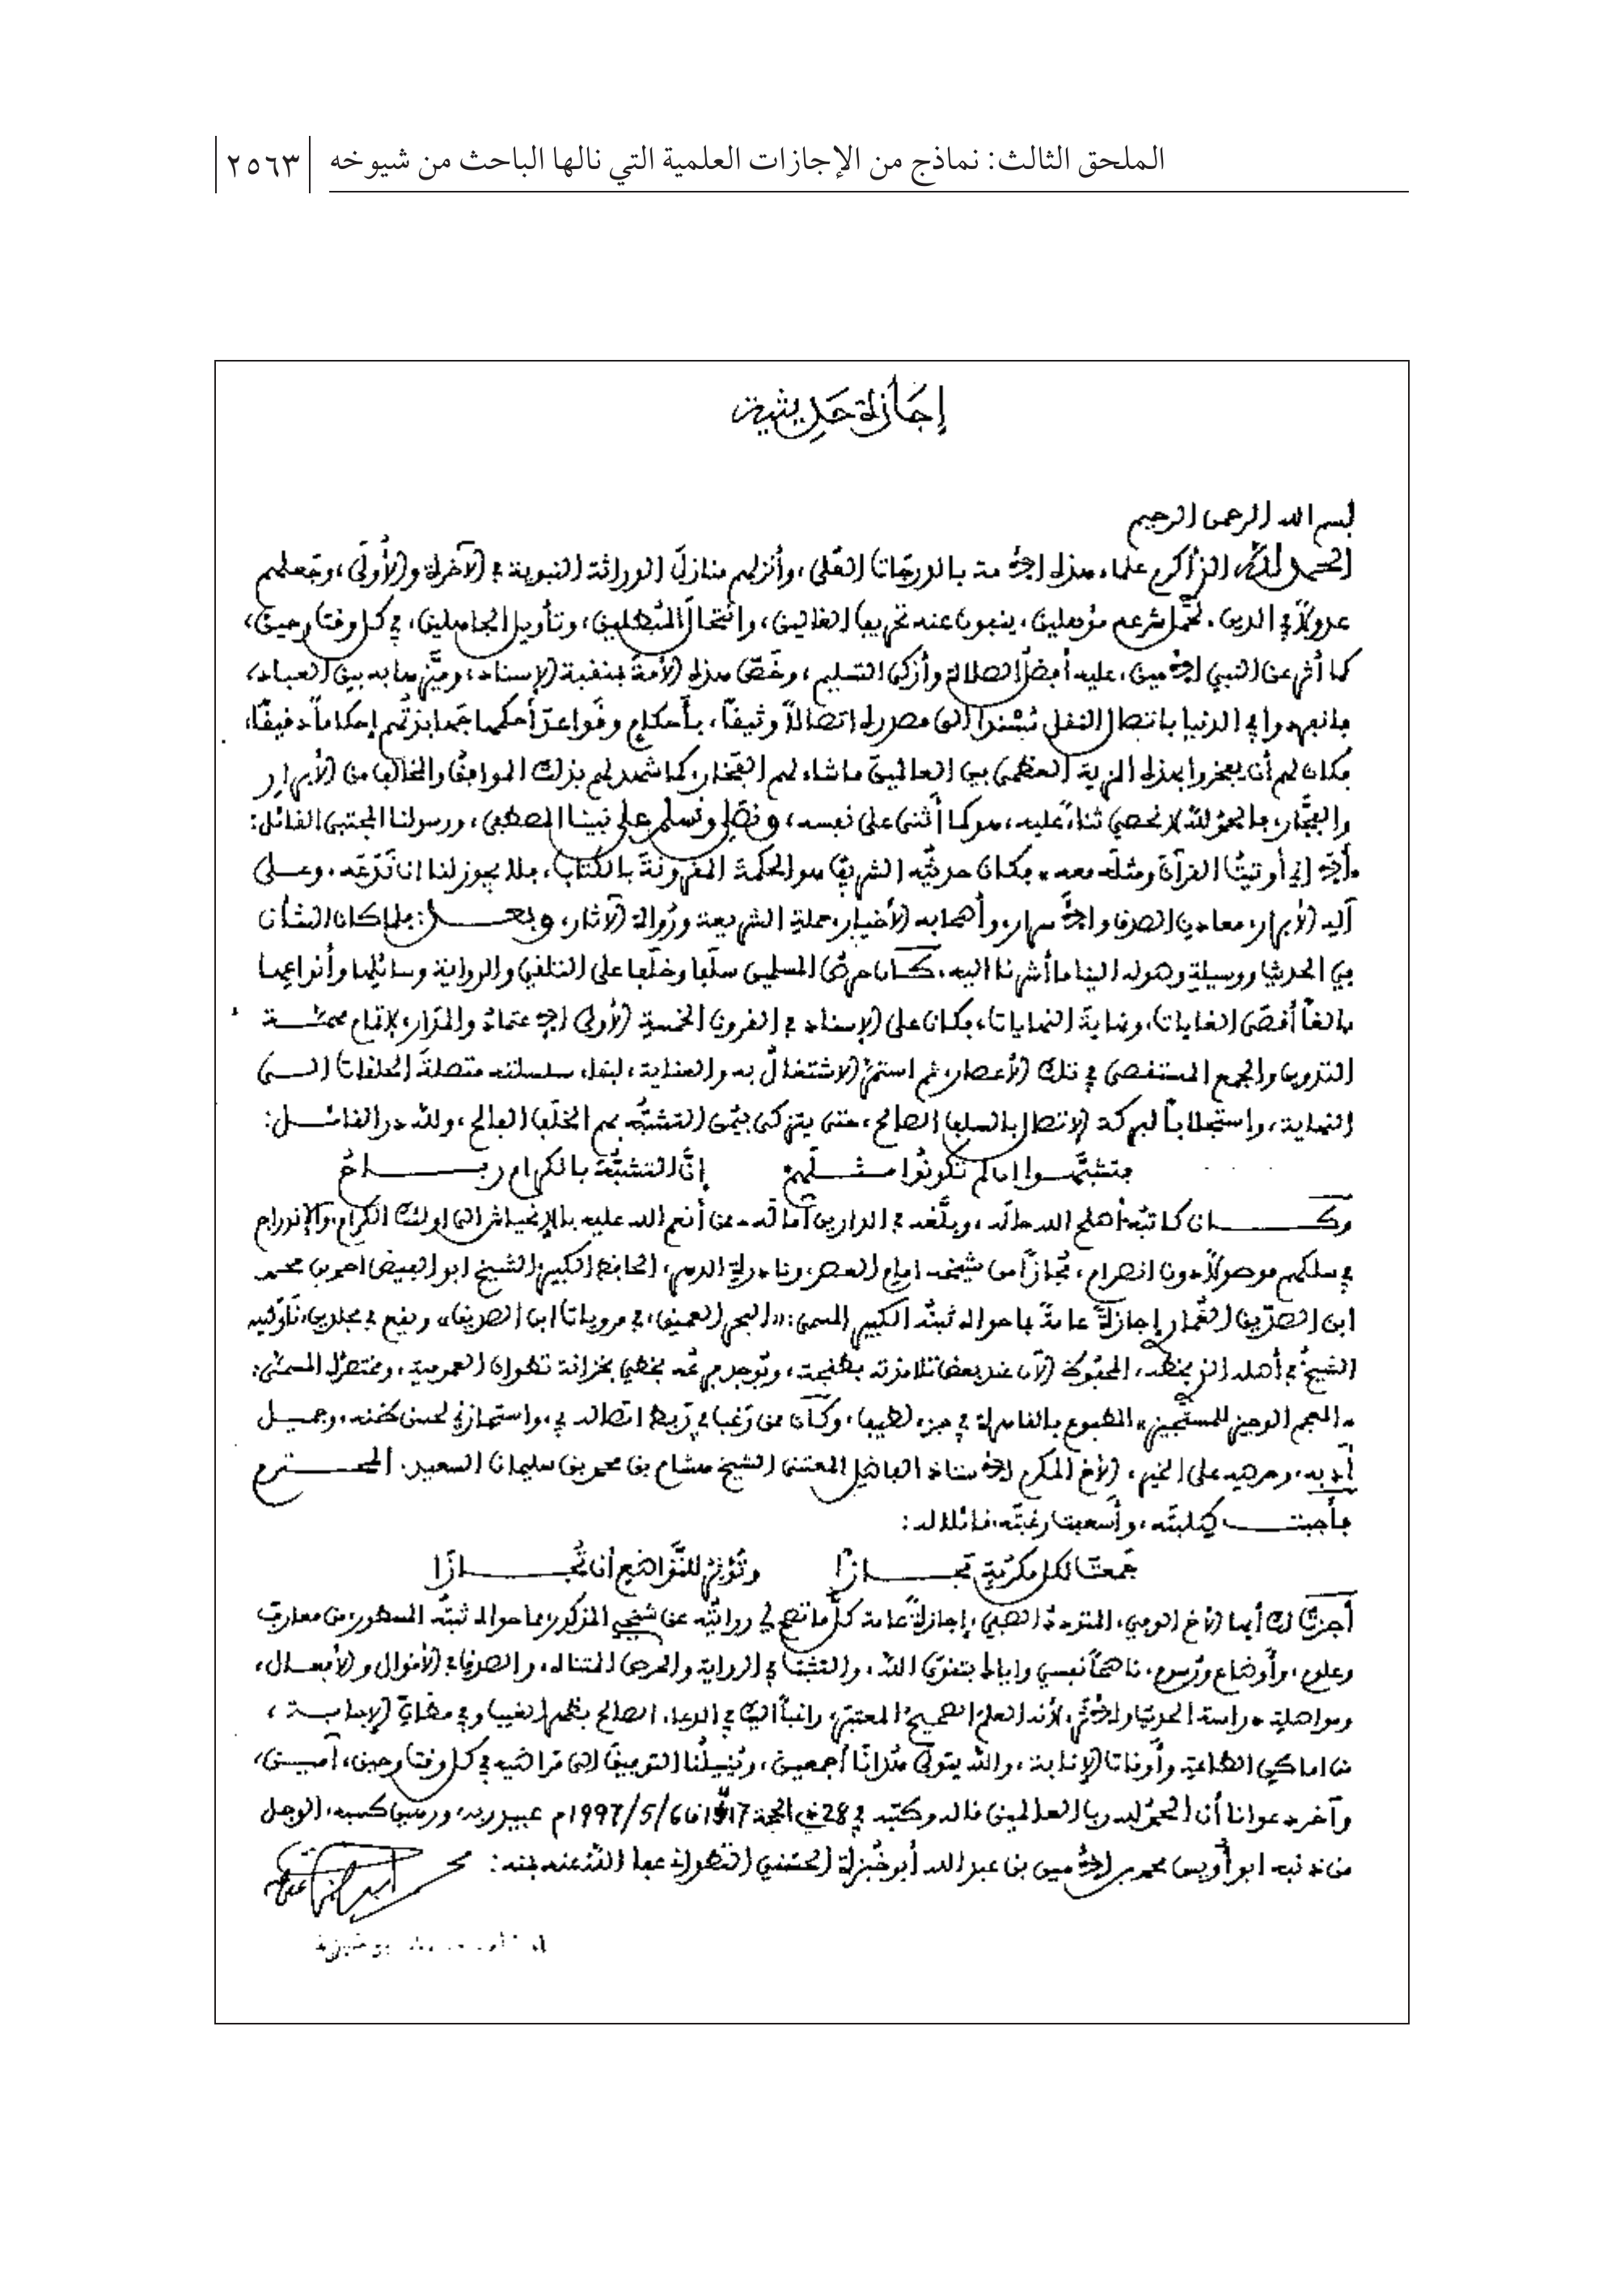 الملحق الثالث: نماذج من الإجازات العلمية التي نالها الباحث من شيوخه
٢٥٦٣
إجَازة حَديثية
بسم الله الرحمن الرحيم
الحمد لله الذي أكرم علماء هذه الأمة بالدرجات العُلى، وأنزلهم منازلَ الوراثة النبوية في الآخرة والأُولَى، وجَعلهم
عدولاً في الدين، لحَمل شرعه مؤهلين، ينفون عنه تحريف الغالين، وانتحالَ المُبطلين، وتأويل الجاهلين، في كل وقت وحين،
كما أُثر عن النبي الأمين، عليه أفضل الصلاة وأزكى التسليم، وخَصَّ هذه الأمة بمنقبة الإسناد، وميَّزها به بين العباد،
فانفردوا في الدنيا باتصال النقل مُسْنداً إلى مصدره اتصالاً وثيقاً، بأحكام وقَواعدَ أحكمها جَهابذتُهم إحكاماً دقيقًا،
فكان لهم أن يفخروا بهذه المزية العظمى بين العالمين ما شاء لهم الفَخار، كما شهد لهم بذلك الموافق والمخالف من الأبرار
والفجَّار، فالحمد لله لا نحصي ثناءً عليه، هو كما أثنى على نفسه، ونصلي ونسلم على نبينا المصطفى، ورسولنا المجتبى القائل:
«ألا إني أوتيتُ القرآن ومثلَه معه» فكان حديثُه الشريف هو الحكمة المقرونة بالكتاب، فلا يجوز لنا ان نَدَعَه، وعلى
آله الأبرار، معادن الصدق والأسرار، وأصحابه الأخيار، حملةِ الشريعة ورُواة الآثار، وبعد: فلما كان الشأن
في الحديث ووسيلةِ وصوله الينا ما أشرنا اليه، كان حرصُ المسلمين سلَفا وخلَفا على التلقي والرواية وسائلها وأنواعها
بالغاً أقصَى الغايات، ونهاية النهايات، فكان على الإسناد في القرون الخمسة الأولى الاعتمادُ والمَدَار، لإتمام مهمة
التدوين والجمع المستقصى في تلك الأعصار، ثم استمرَّ الاشتغالُ به والعناية، لبقاء سلسلته متصلةَ الحلقات الى
النهاية، واستجلاباً لبركة الاتصال بالسلف الصالح، حتى يتزكى بيُمن التشبُّه بهم الخلَف الفالح، ولله در القائل:
فتشبَّهوا إن لم تكونُوا مثلَهم إنَّ التشبُّهَ بالكرام ربَاحُ
وكان كاتبُه أصلح الله حالَه، وبلَّغه في الدارين آمالَه، من أنعم الله عليه بالإنحياش الى اولئك الكرام، والإندراج
في سلكهم موصولاً دون انصرام، مُجازاً من شيخه امام العصر، ونادرةِ الدهر، الحافظ الكبير الشيخ ابو الفيض احمد بن محمد
ابن الصدّيق الغُمارِي إجازةً عامةً بما حواه ثبتُه الكبير المسمى: «البحر العميق، في مرويات ابن الصديق» ويقع في مجلدين،
الشيخُ في أصله الذي بخطه، الآن عند بعض تلامذته بطنجة، وتُوجد منه بخطي بخزانة تطوان العمومية، ومختصَرُه المسمَّى:
«المعجم الوجيز للمستجيز» المطبوع بالقاهرة في جزء لطيف، وكان ممن رَغب في رَبط اتصاله بي، واستجازني لحسن ظنه، وجميل
أدبه، وحرصِه على الخير، الأخ المكرم الأستاذ الفاضل المعتنى الشيخ هشام بن محمد بن سليمان السعيد. المحترم
فأجبت طِلبتَه، وأسعفت رغبتَه، قائلا له:
جَمعتَ لكل مكرُمةٍ مَجازًا وتُؤثِرُ للتَّواضُع أن تُجازَا
أجزتُ لك أيها الأخ الوفي، إجازةً عامة كلَّ ما تصح لي روايتُه عن شيخي المذكور، مما حواه ثبتُه المسطور، من معارفَ
وعلوم، وأوضاع ورُسوم، ناصحاً نفسي واياك بتقوى الله، والتثبت في الرواية والحرص المتناه، والصدقِ في الأقوال والأفعال،
ومواصلةِ دراسة الحديث والأثر، لأنه العلم الصحيحُ المعتبر، راغباً اليك في الدعاء الصالح بظهر الغيب وفي مظانِّ الإجابة،
من اماكن الطاعةِ وأوقات الإنابة، والله يتولى هُدانَا أجمعين، ويُنيلُنا التوفيق الى مَراضيه في كل وقت وحين، آمين،
وآخر دعوانا أن الحمدُ لله رب العالمين قاله وكتبه في 28 ذي الحجة 1417 ق 1997/5/6م عبيد ربه، ورهين كسبه، الوجل
من ذنبه ابو أويس محمد بن الأمين بن عبد الله أبو خُبزة الحَسَني التطواني عفا اللهُ عنه بمنه: